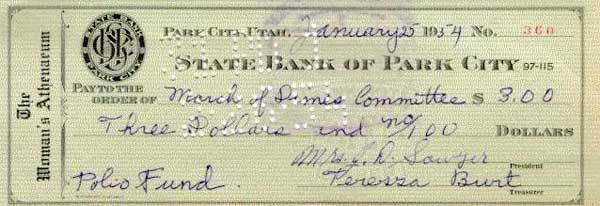 The Woman's Athenaeum
STATE BANK
PARK CITY
PARK CITY, UTAH, January 25 1954 No. 360
STATE BANK OF PARK CITY 97-115
PAY TO THE ORDER OF March of Dimes Committee $ 3.00
Three Dollars and no/100 DOLLARS
Mrs. L. D. Sawyer
President
Polio Fund. Teressa Burt
Treasurer